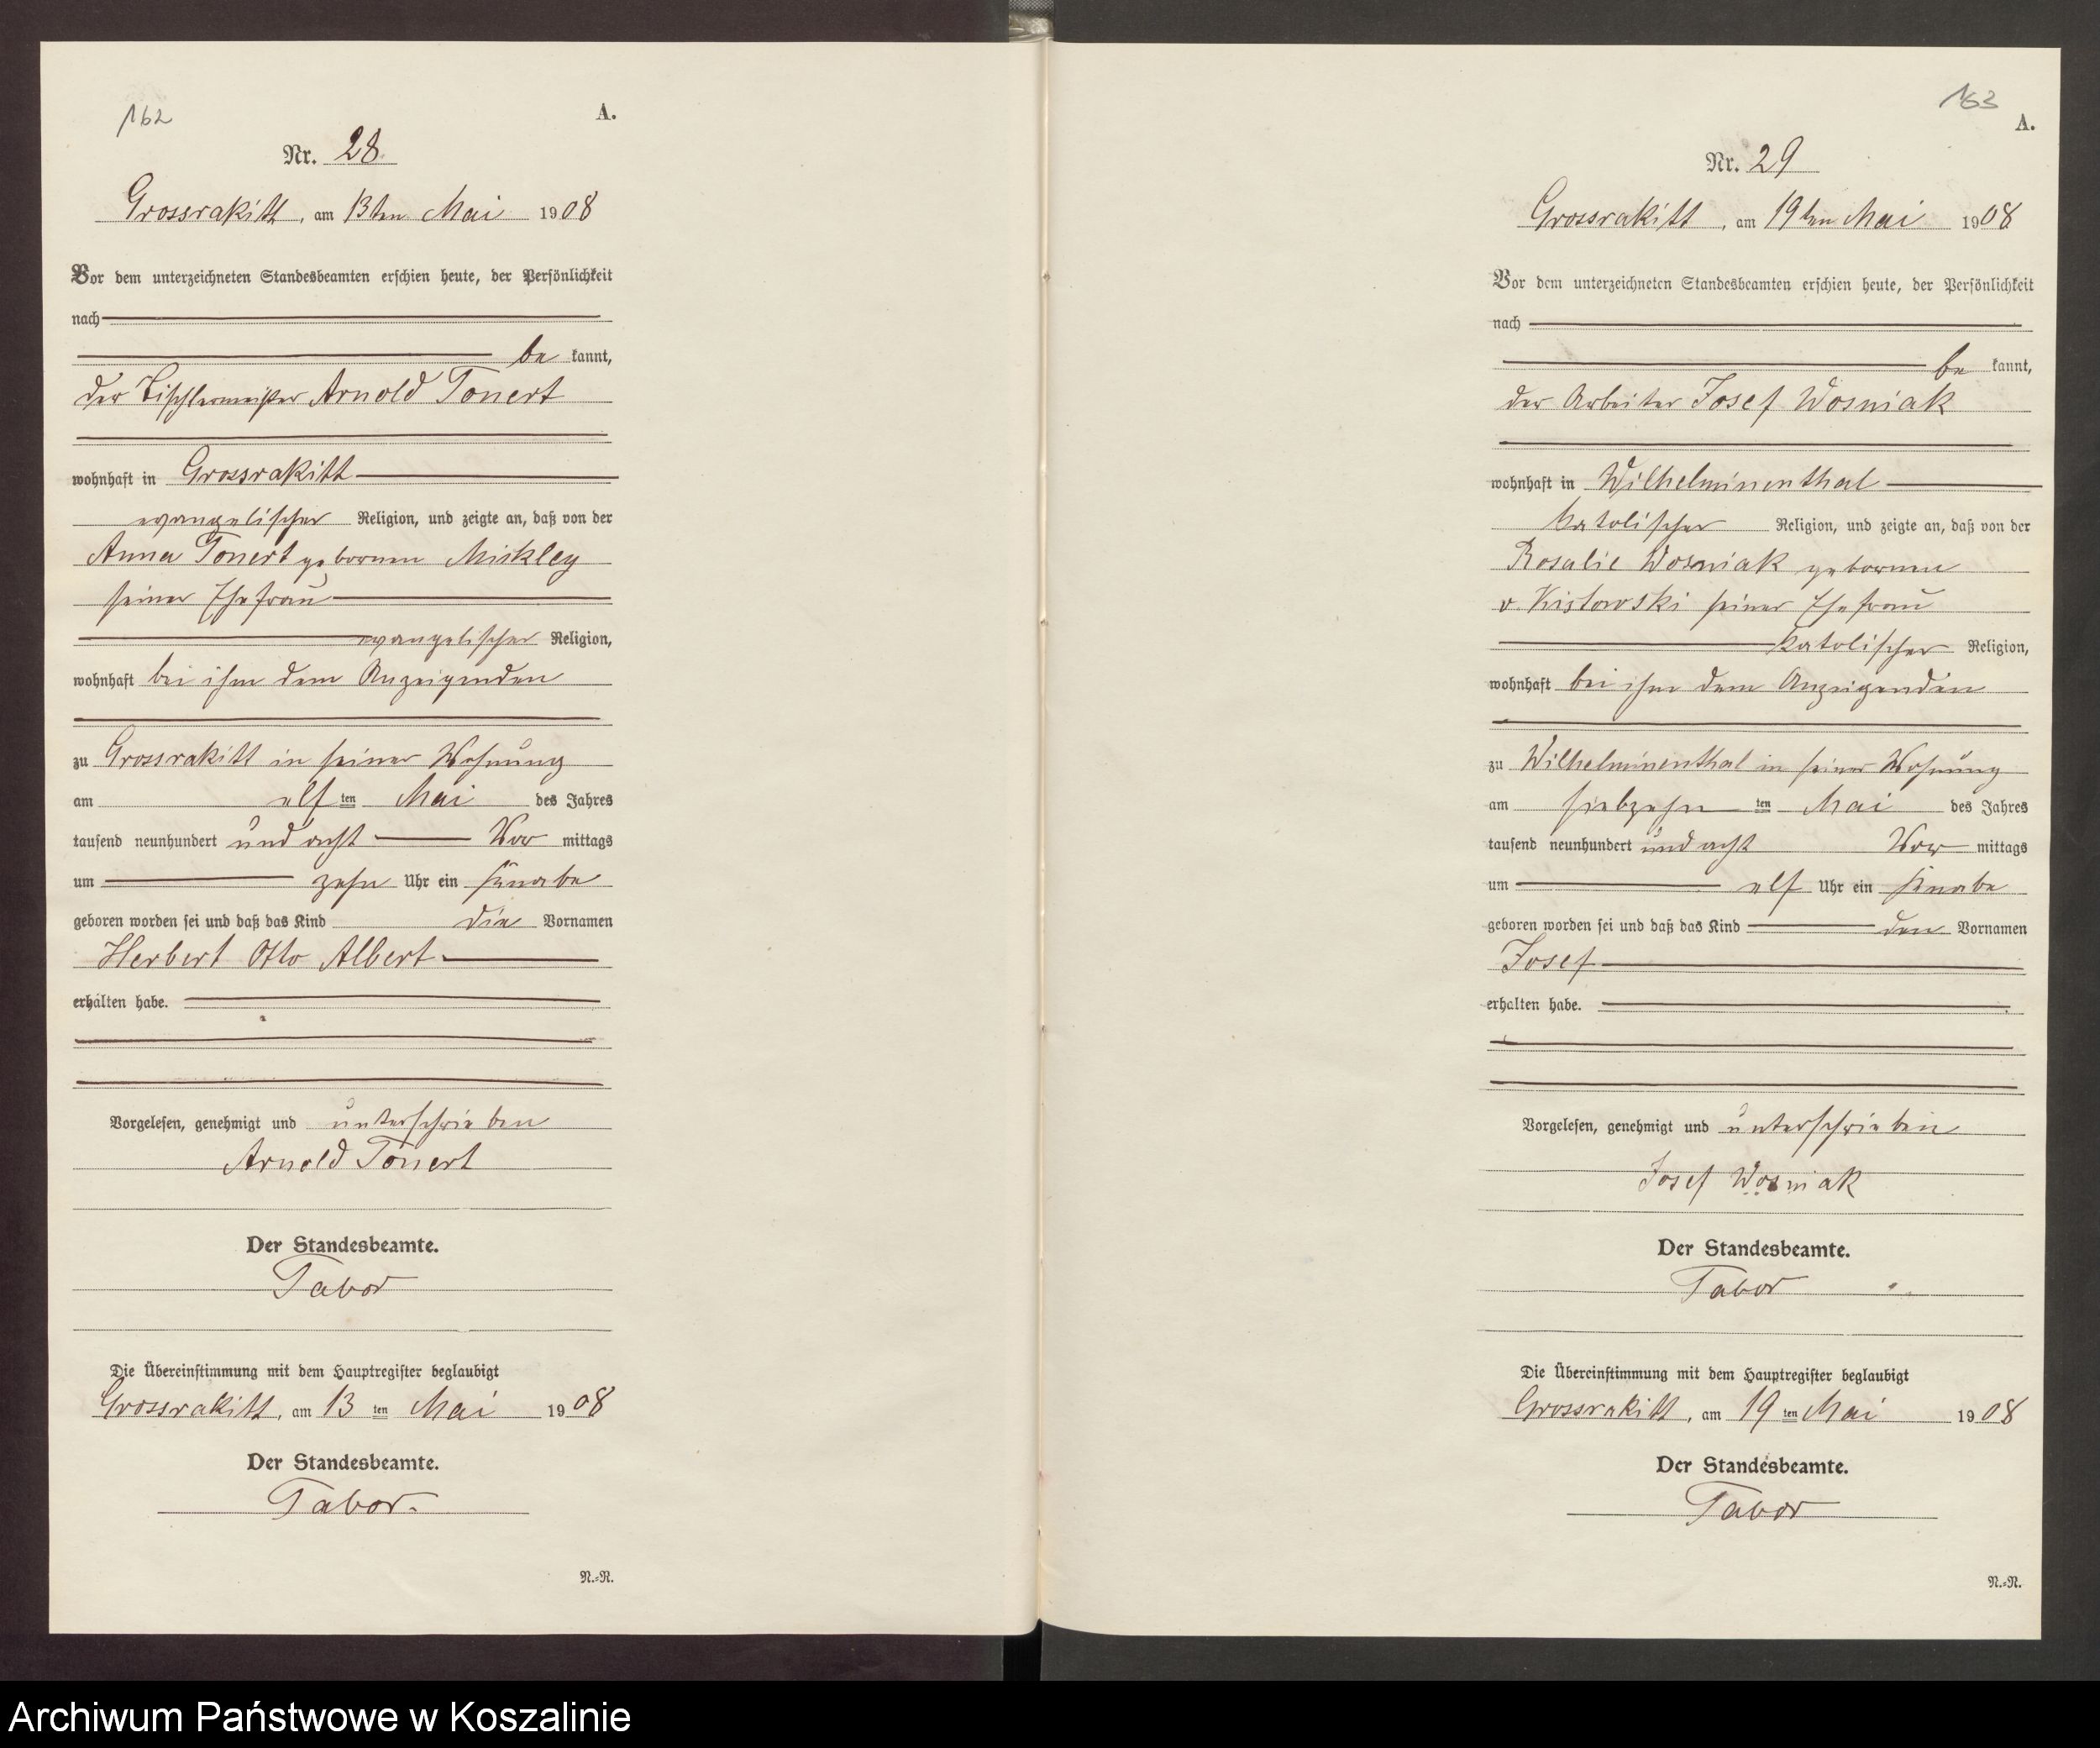 162
A.
Nr. 28
Grossrakitt, am 13ten Mai 1908
Vor dem unterzeichneten Standesbeamten erschien heute, der Persönlichkeit
nach
be kannt,
der Tischlermeister Arnold Tonert
wohnhaft in Grossrakitt
evangelischer Religion, und zeigte an, daß von der
Anna Tonert gebornen Miskley
seiner Ehefrau
evangelischer Religion,
wohnhaft bei ihm dem Anzeigenden
zu Grossrakitt in seiner Wohnung
am elf ten Mai des Jahres
tausend neunhundert und acht Vor mittags
um zehn Uhr ein Knabe
geboren worden sei und daß das Kind die Vornamen
Herbert Otto Albert
erhalten habe.
Vorgelesen, genehmigt und unterschrieben
Arnold Tonert
Der Standesbeamte.
Tabor
Die Übereinstimmung mit dem Hauptregister beglaubigt
Grossrakitt, am 13 ten Mai 1908
Der Standesbeamte.
Tabor.
N.-R.
163
A.
Nr. 29
Grossrakitt, am 19ten Mai 1908
Vor dem unterzeichneten Standesbeamten erschien heute, der Persönlichkeit
nach
be kannt,
der Arbeiter Josef Wosniak
wohnhaft in Wilhelminenthal
katolischer Religion, und zeigte an, daß von der
Rosalie Wosniak gebornen
v. Kistowski seiner Ehefrau
katolischer Religion,
wohnhaft bei ihm dem Anzeigenden
zu Wilhelminenthal in seiner Wohnung
am siebzehn ten Mai des Jahres
tausend neunhundert und acht Vor mittags
um elf Uhr ein Knabe
geboren worden sei und daß das Kind den Vornamen
Josef
erhalten habe.
Vorgelesen, genehmigt und unterschrieben
Josef Wosniak
Der Standesbeamte.
Tabor
Die Übereinstimmung mit dem Hauptregister beglaubigt
Grossrakitt, am 19 ten Mai 1908
Der Standesbeamte.
Tabor
N.-R.
Archiwum Państwowe w Koszalinie